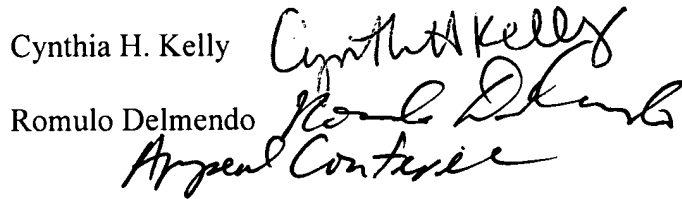 Cynthia H. Kelly Cynthia H Kelly
Romulo Delmendo Romulo Delmendo
Appeal Conferee